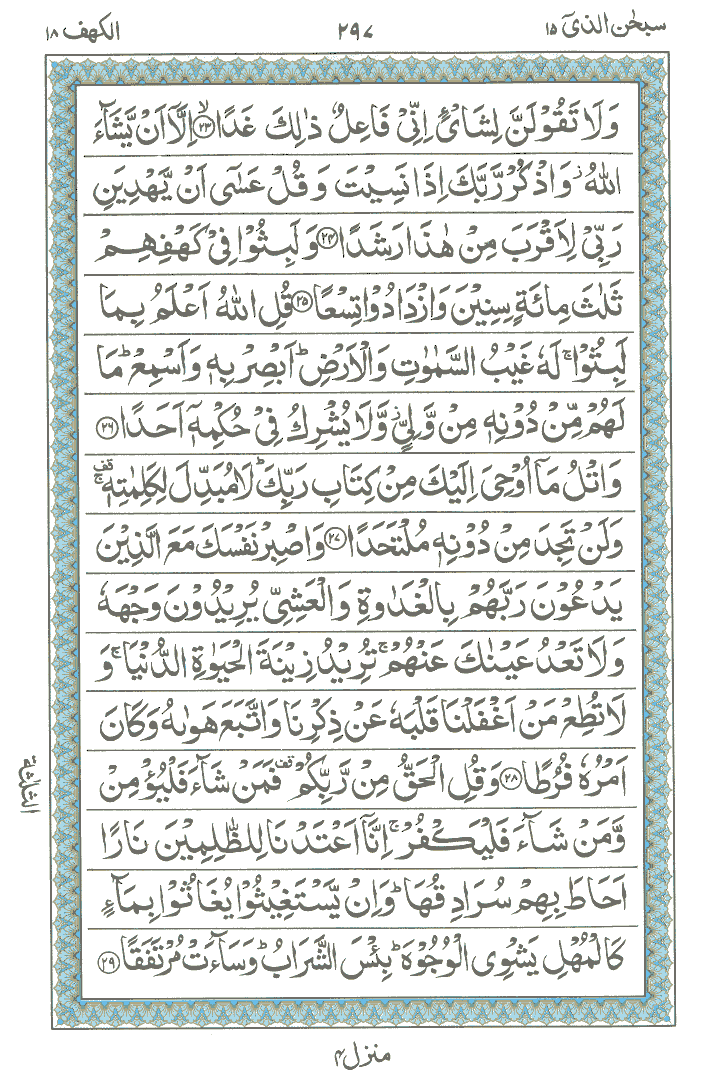 سبحٰن الذیٓ ۱۵
۲۹۷
الکهف ۱۸
وَلَا تَقُوْلَنَّ لِشَایْءٍ اِنِّیْ فَاعِلٌ ذٰلِكَ غَدًا ۙ‏﴿۲۳﴾ اِلَّاۤ اَنْ یَّشَآءَ
اللّٰهُ ؗ وَاذْكُرْ رَّبَّكَ اِذَا نَسِیْتَ وَ قُلْ عَسٰۤی اَنْ یَّهْدِیَنِ
رَبِّیْ لِاَقْرَبَ مِنْ هٰذَا رَشَدًا ﴿۲۴﴾ وَ لَبِثُوْا فِیْ كَهْفِهِمْ
ثَلٰثَ مِائَةٍ سِنِیْنَ وَازْدَادُوْا تِسْعًا ﴿۲۵﴾ قُلِ اللّٰهُ اَعْلَمُ بِمَا
لَبِثُوْا ۚ لَهٗ غَیْبُ السَّمٰوٰتِ وَالْاَرْضِ ؕ اَبْصِرْ بِهٖ وَاَسْمِعْ ؕ مَا
لَهُمْ مِّنْ دُوْنِهٖ مِنْ وَّلِیٍّ ؗ وَّلَا یُشْرِكُ فِیْ حُكْمِهٖۤ اَحَدًا ﴿۲۶﴾
وَاتْلُ مَاۤ اُوْحِیَ اِلَیْكَ مِنْ كِتَابِ رَبِّكَ ؕ لَا مُبَدِّلَ لِكَلِمٰتِهٖ ۚ۫
وَلَنْ تَجِدَ مِنْ دُوْنِهٖ مُلْتَحَدًا ﴿۲۷﴾ وَاصْبِرْ نَفْسَكَ مَعَ الَّذِیْنَ
یَدْعُوْنَ رَبَّهُمْ بِالْغَدٰوةِ وَالْعَشِیِّ یُرِیْدُوْنَ وَجْهَهٗ
وَلَا تَعْدُ عَیْنٰكَ عَنْهُمْ ۚ تُرِیْدُ زِیْنَةَ الْحَیٰوةِ الدُّنْیَا ۚ وَ
لَا تُطِعْ مَنْ اَغْفَلْنَا قَلْبَهٗ عَنْ ذِكْرِنَا وَاتَّبَعَ هَوٰىهُ وَكَانَ
اَمْرُهٗ فُرُطًا ﴿۲۸﴾ وَقُلِ الْحَقُّ مِنْ رَّبِّكُمْ ۫ فَمَنْ شَآءَ فَلْیُؤْمِنْ
وَّمَنْ شَآءَ فَلْیَكْفُرْ ۚ اِنَّاۤ اَعْتَدْنَا لِلظّٰلِمِیْنَ نَارًا
اَحَاطَ بِهِمْ سُرَادِقُهَا ؕ وَاِنْ یَّسْتَغِیْثُوْا یُغَاثُوْا بِمَآءٍ
كَالْمُهْلِ یَشْوِی الْوُجُوْهَ ؕ بِئْسَ الشَّرَابُ ؕ وَسَآءَتْ مُرْتَفَقًا ﴿۲۹﴾
الثلثة
منزل ۴